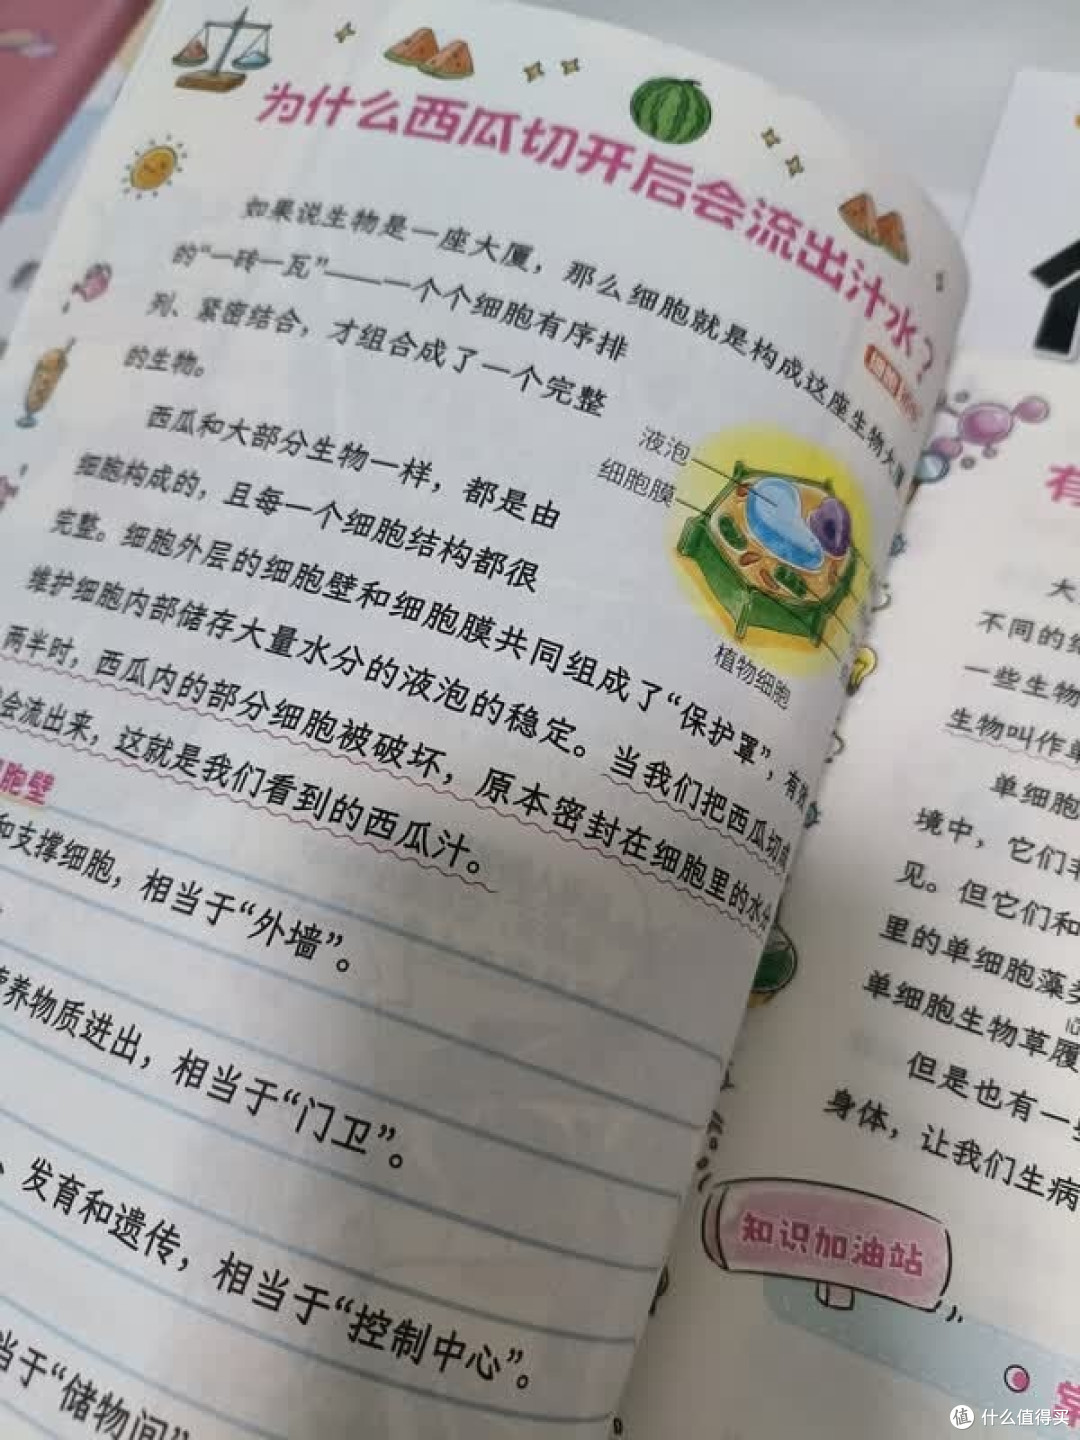 为什么西瓜切开后会流出汁水？
如果说生物是一座大厦，那么细胞就是构成这座生物大厦
的“一砖一瓦”——一个个细胞有序排
列、紧密结合，才组合成了一个完整
的生物。
液泡
细胞膜
植物细胞
西瓜和大部分生物一样，都是由
细胞构成的，且每一个细胞结构都很
完整。细胞外层的细胞壁和细胞膜共同组成了“保护罩”，有效
维护细胞内部储存大量水分的液泡的稳定。当我们把西瓜切成
两半时，西瓜内的部分细胞被破坏，原本密封在细胞里的水分
会流出来，这就是我们看到的西瓜汁。
胞壁
和支撑细胞，相当于“外墙”。
营养物质进出，相当于“门卫”。
、发育和遗传，相当于“控制中心”。
当于“储物间”
有
大
不同的细
一些生物
生物叫作单
单细胞
境中，它们非
见。但它们和
里的单细胞藻类
单细胞生物草履
但是也有一些
身体，让我们生病
知识加油站
常
值 什么值得买